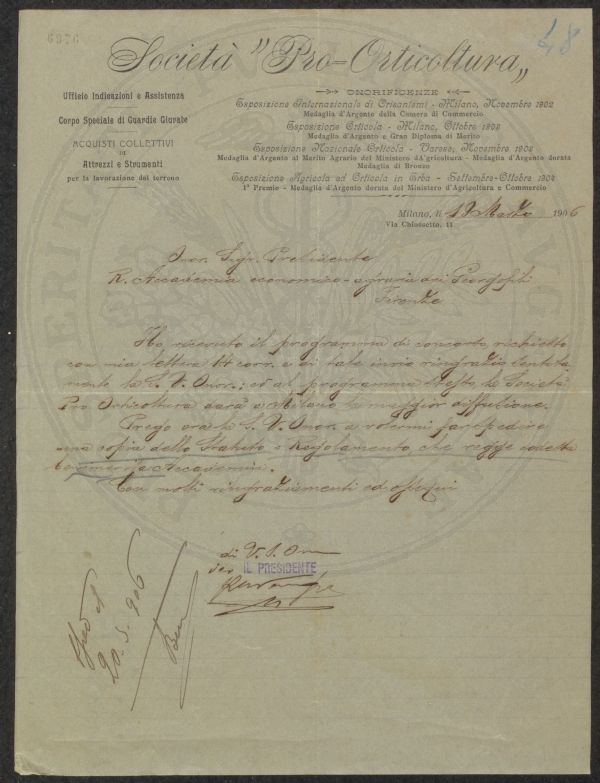 6976
48
Società "Pro=Orticoltura„
Ufficio Indicazioni e Assistenza
Corpo Speciale di Guardie Giurate
ACQUISTI COLLETTIVI
DI
Attrezzi e Strumenti
per la lavorazione del terreno
ONORIFICENZE
Esposizione Internazionale di Crisantemi - Milano, Novembre 1902
Medaglia d'Argento della Camera di Commercio
Esposizione Orticola - Milano, Ottobre 1903
Medaglia d'Argento e Gran Diploma di Merito
Esposizione Nazionale Orticola - Varese, Novembre 1904
Medaglia d'Argento al Merito Agrario del Ministero d'Agricoltura - Medaglia d'Argento dorata
Medaglia di Bronzo
Esposizione Agricola ed Orticola in Erba - Settembre-Ottobre 1904
1° Premio - Medaglia d'Argento dorata del Ministero d'Agricoltura e Commercio
Milano, li 19 Marzo 1906
Via Chiossetto, 11
Onor. Sigr. Presidente
R. Accademia economico-agraria dei Georgofili
Firenze
Ho ricevuto il programma di concorto richiesto
con mia lettera 14 corr. e di tale invio ringrazio sentita
mente la S. V. Onor.; ed al programma stesso la Società
Pro Orticoltura darà a Milano la maggior diffusione.
Prego ora la S. V. Onor. a volermi far spedire
una copia dello Statuto e Regolamento che regge codesta
Accademia.
Con molti ringraziamenti ed ossequi
di V. S. Onor
IL PRESIDENTE
20. 3. 906